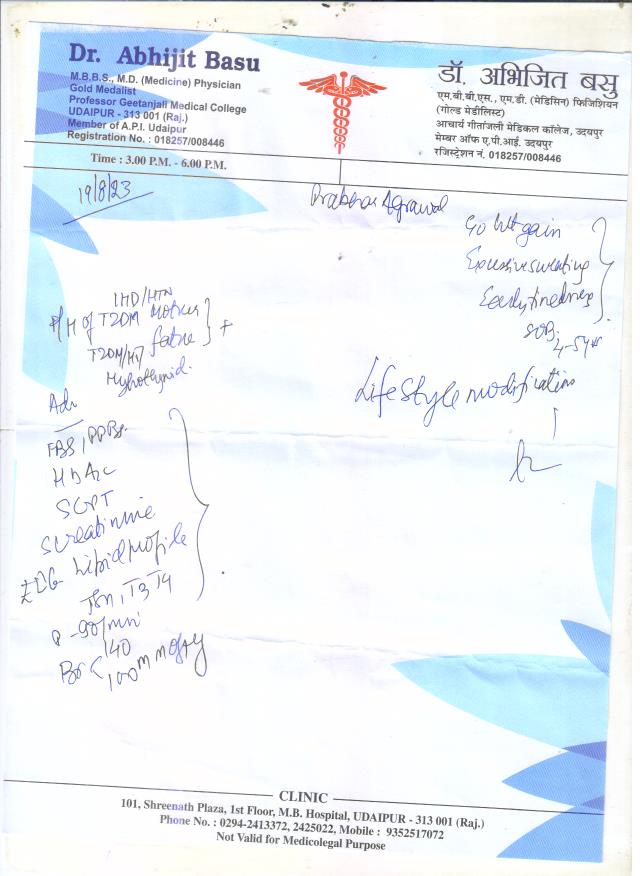 Dr. Abhijit Basu
M.B.B.S., M.D. (Medicine) Physician
Gold Medalist
Professor Geetanjali Medical College
UDAIPUR - 313 001 (Raj.)
Member of A.P.I. Udaipur
Registration No. : 018257/008446
Time : 3.00 P.M. - 6.00 P.M.
डॉ. अभिजित बसु
एम.बी.बी.एस., एम.डी. (मेडिसिन) फिजिशियन
(गोल्ड मेडीलिस्ट)
आचार्य गीतांजली मेडिकल कॉलेज, उदयपुर
मेम्बर ऑफ ए.पी.आई. उदयपुर
रजिस्ट्रेशन नं. 018257/008446
19/8/23
Agrawal
c/o wt gain
Excessive sweating
Early tiredness
SOB
4-5 yrs
IHD/HTN
F/H of T2DM Mother
T2DM/HT father
+
Hypothyroid.
Lifestyle modification
Adv
FBS, PPBS
HbA1c
SGPT
S creatinine
ECG Lipid profile
TSH, T3 T4
P -90/min
BP < 140
100 mmHg
CLINIC
101, Shreenath Plaza, 1st Floor, M.B. Hospital, UDAIPUR - 313 001 (Raj.)
Phone No. : 0294-2413372, 2425022, Mobile : 9352517072
Not Valid for Medicolegal Purpose